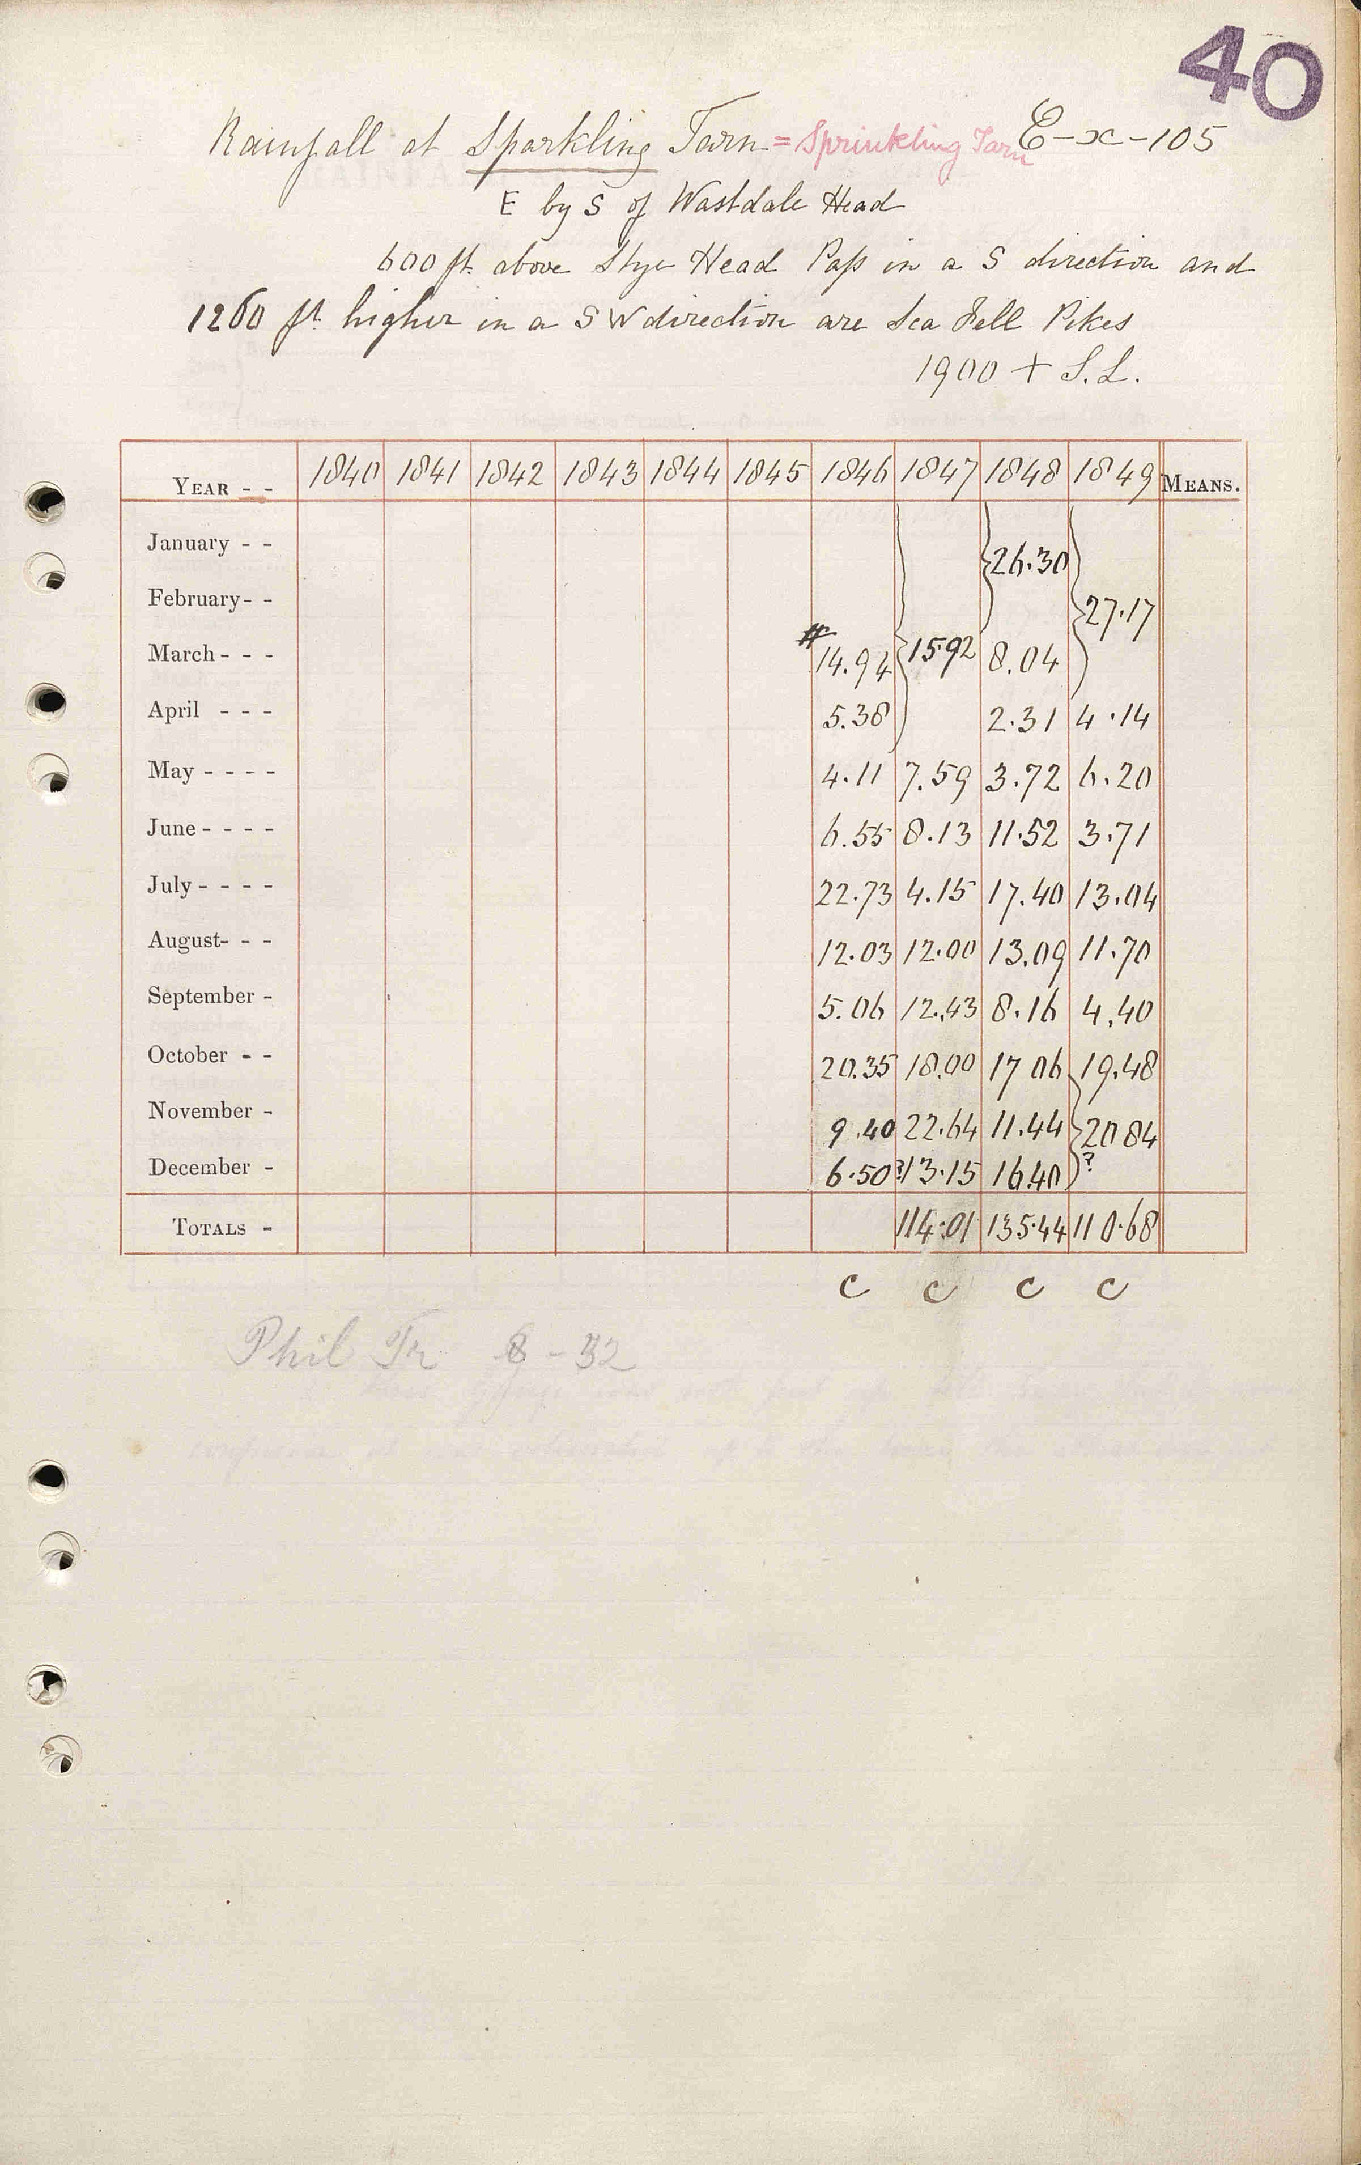 40
Rainfall at Sparkling Tarn = Sprinkling Tarn E-x-105
E by S of Wastdale Head
600 ft. above Stye Head Pass in a S direction and
1260 ft higher in a S W direction are Sca Fell Pikes
1900 + S.L.
YEAR - - 1840 1841 1842 1843 1844 1845 1846 1847 1848 1849 MEANS.
January - - 26.30
February - - 27.17
March - - - # 14.94 15.92 8.04
April - - - 5.38 2.31 4.14
May - - - - 4.11 7.59 3.72 6.20
June - - - - 6.55 8.13 11.52 3.71
July - - - - 22.73 4.15 17.40 13.04
August- - - 12.03 12.00 13.09 11.70
September - 5.06 12.43 8.16 4.40
October - - 20.35 18.00 17 06 19.48
November - 9.40 22.64 11.44 20 84
December - 6.50? 13.15 16.40 ?
TOTALS - 114.01 135.44 110.68
C C C C
Phil Tr 8 - 32